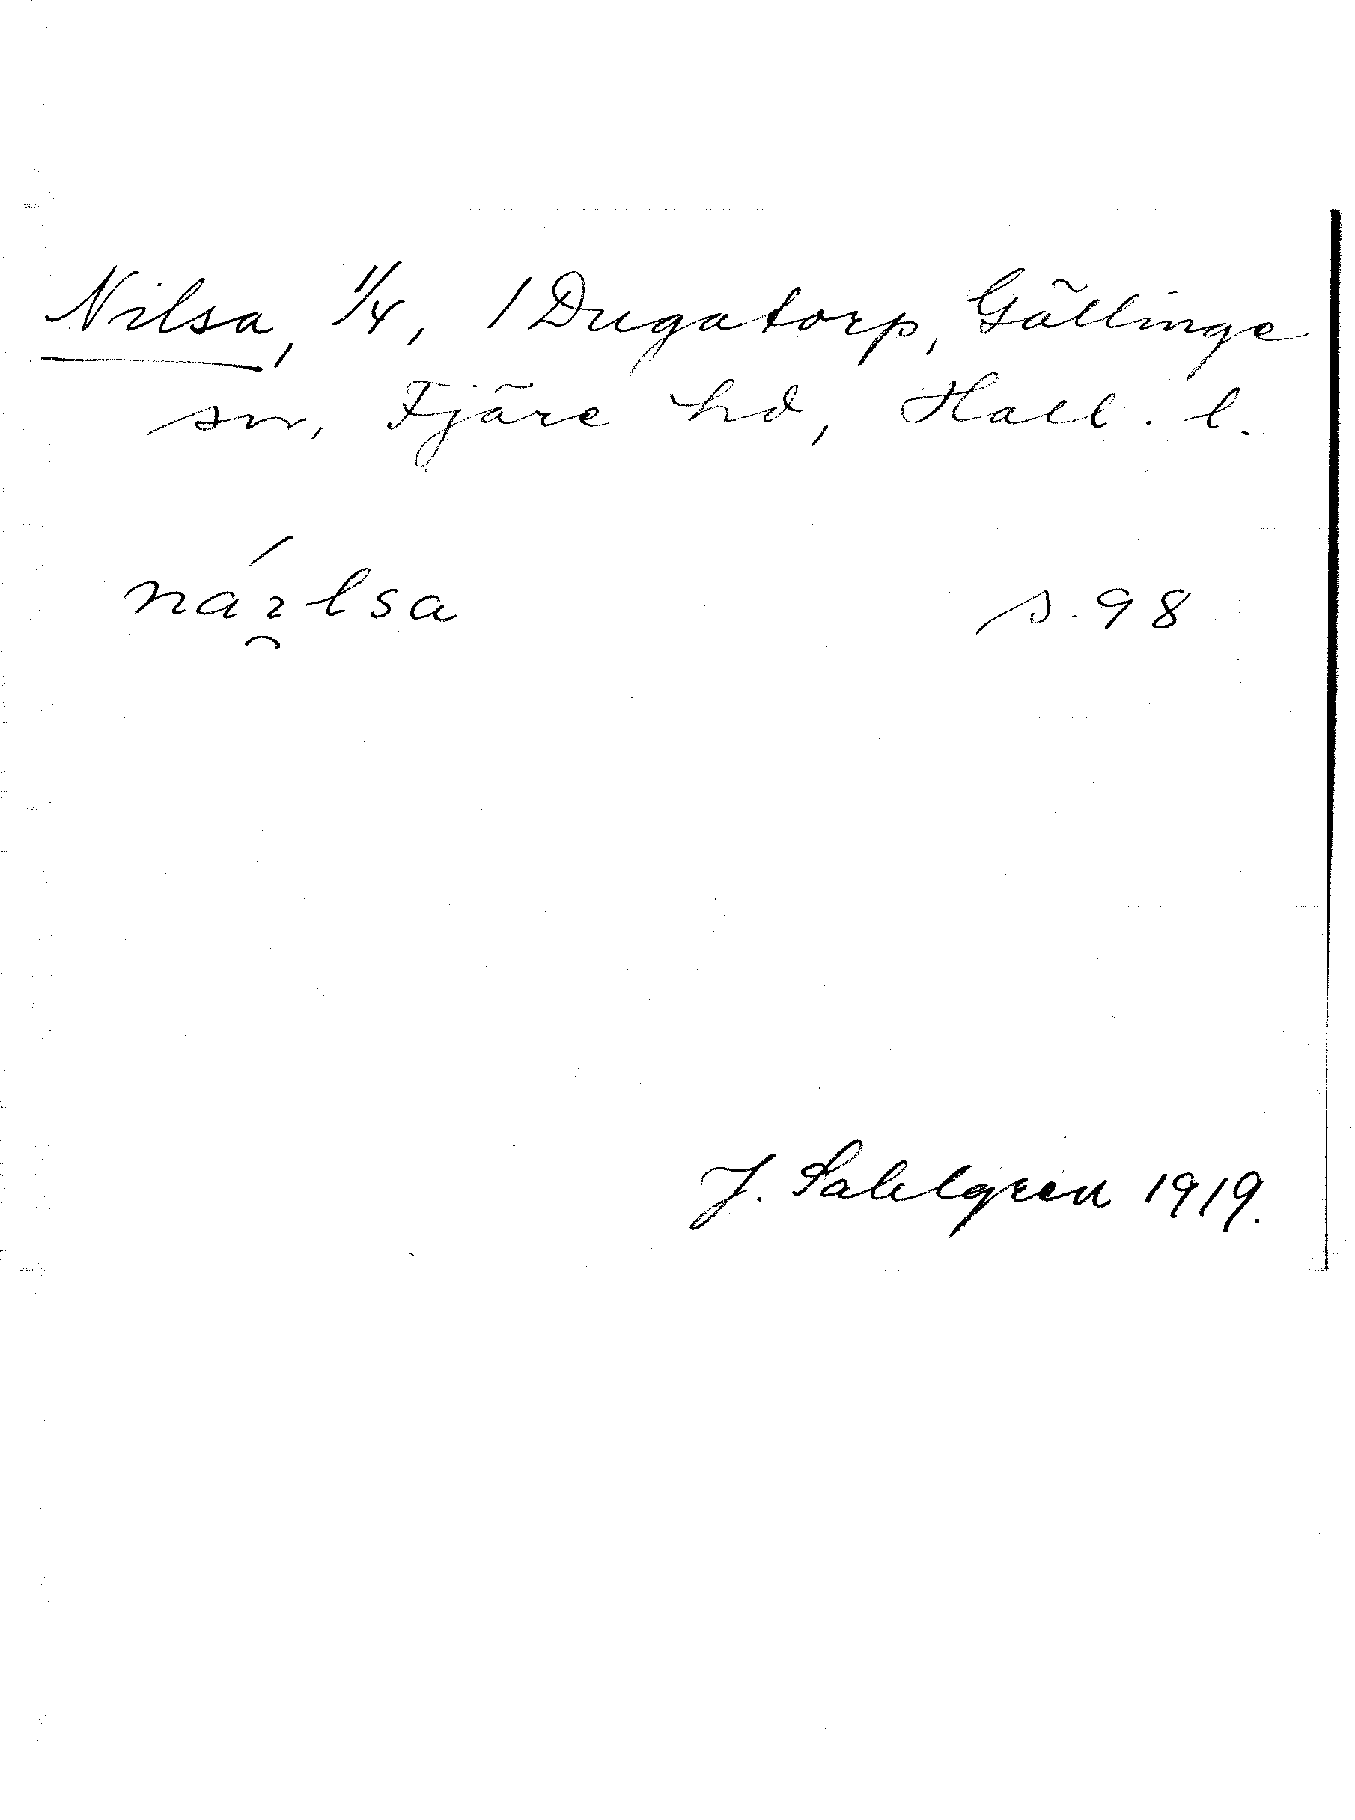 Nilsa, 1/4, 1 Dugatorp, Gällinge
sn, Fjäre hd, Hall. l.
náɿ̯lsa s. 98
J. Sahlgren 1919.